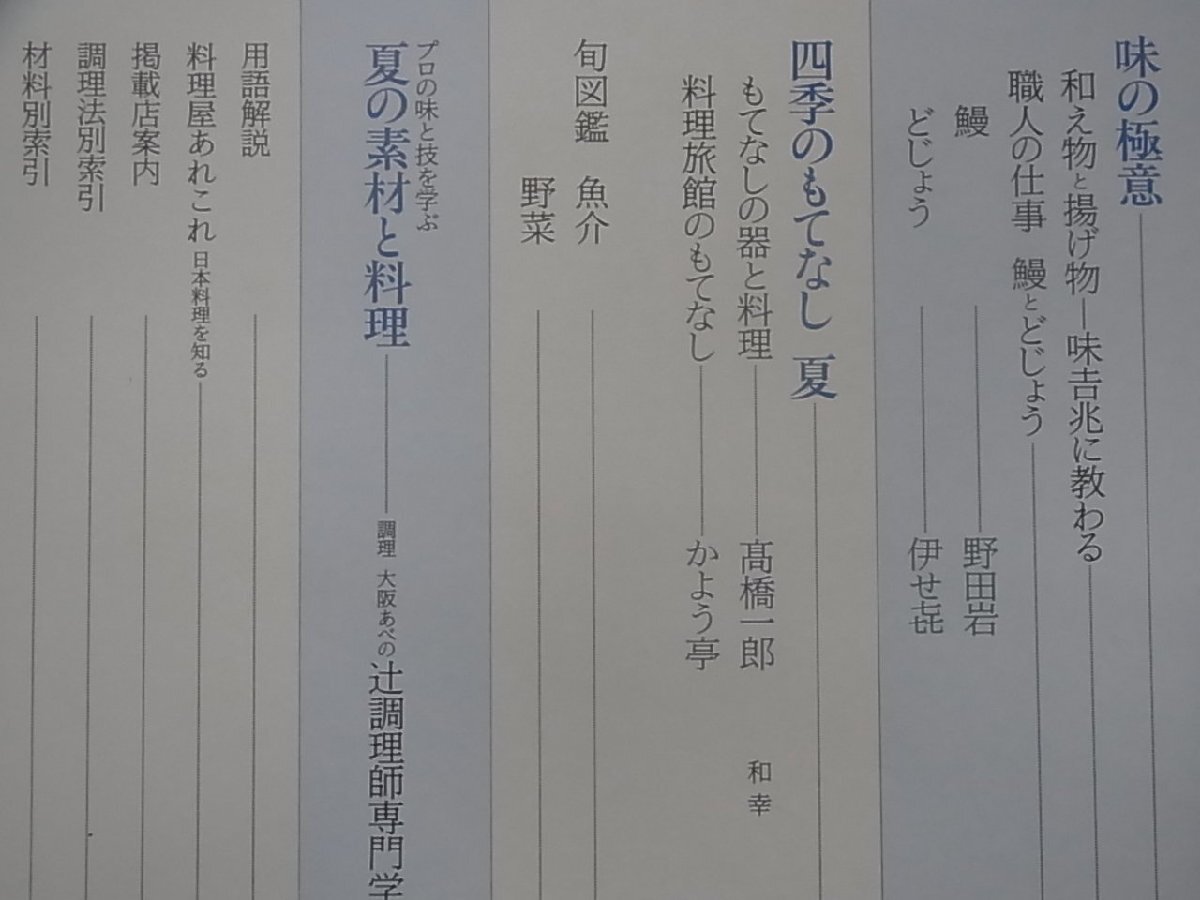 味の極意
和え物と揚げ物―味吉兆に教わる
職人の仕事 鰻とどじょう
鰻 野田岩
どじょう 伊せ㐂
四季のもてなし 夏
もてなしの器と料理 髙橋一郎 和幸
料理旅館のもてなし かよう亭
旬図鑑 魚介
野菜
プロの味と技を学ぶ
夏の素材と料理 調理 大阪あべの辻調理師専門学
用語解説
料理屋あれこれ 日本料理を知る
掲載店案内
調理法別索引
材料別索引